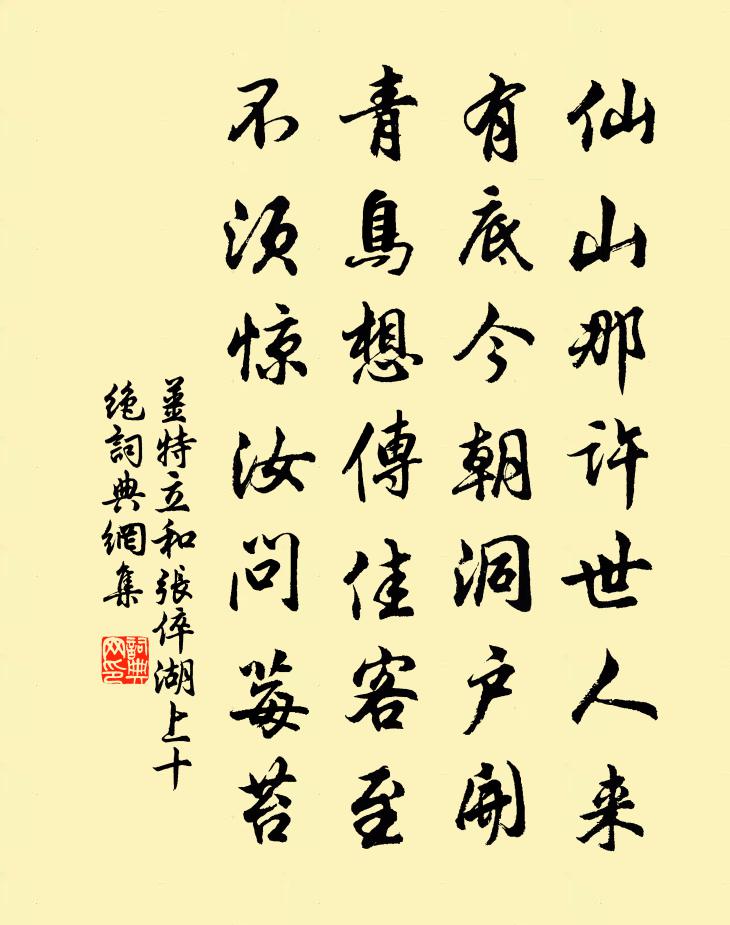 仙山那许世人来
有底今朝洞户開
青鳥想傳佳客至
不须惊汝問莓苔
姜特立和張倅湖上十
绝詞典網集
詞典网印